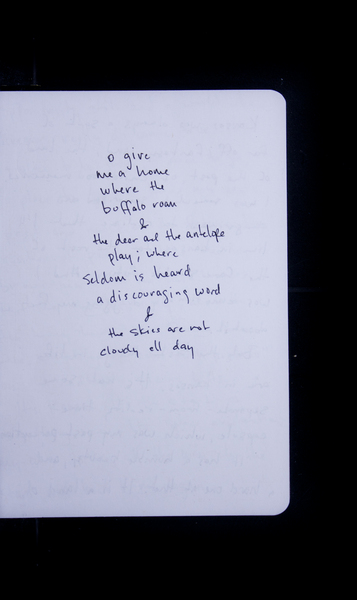 o give
me a home
where the
buffalo roam
&
the deer and the antelope
play; where
Seldom is heard
a discouraging word
&
the skies are not
cloudy all day